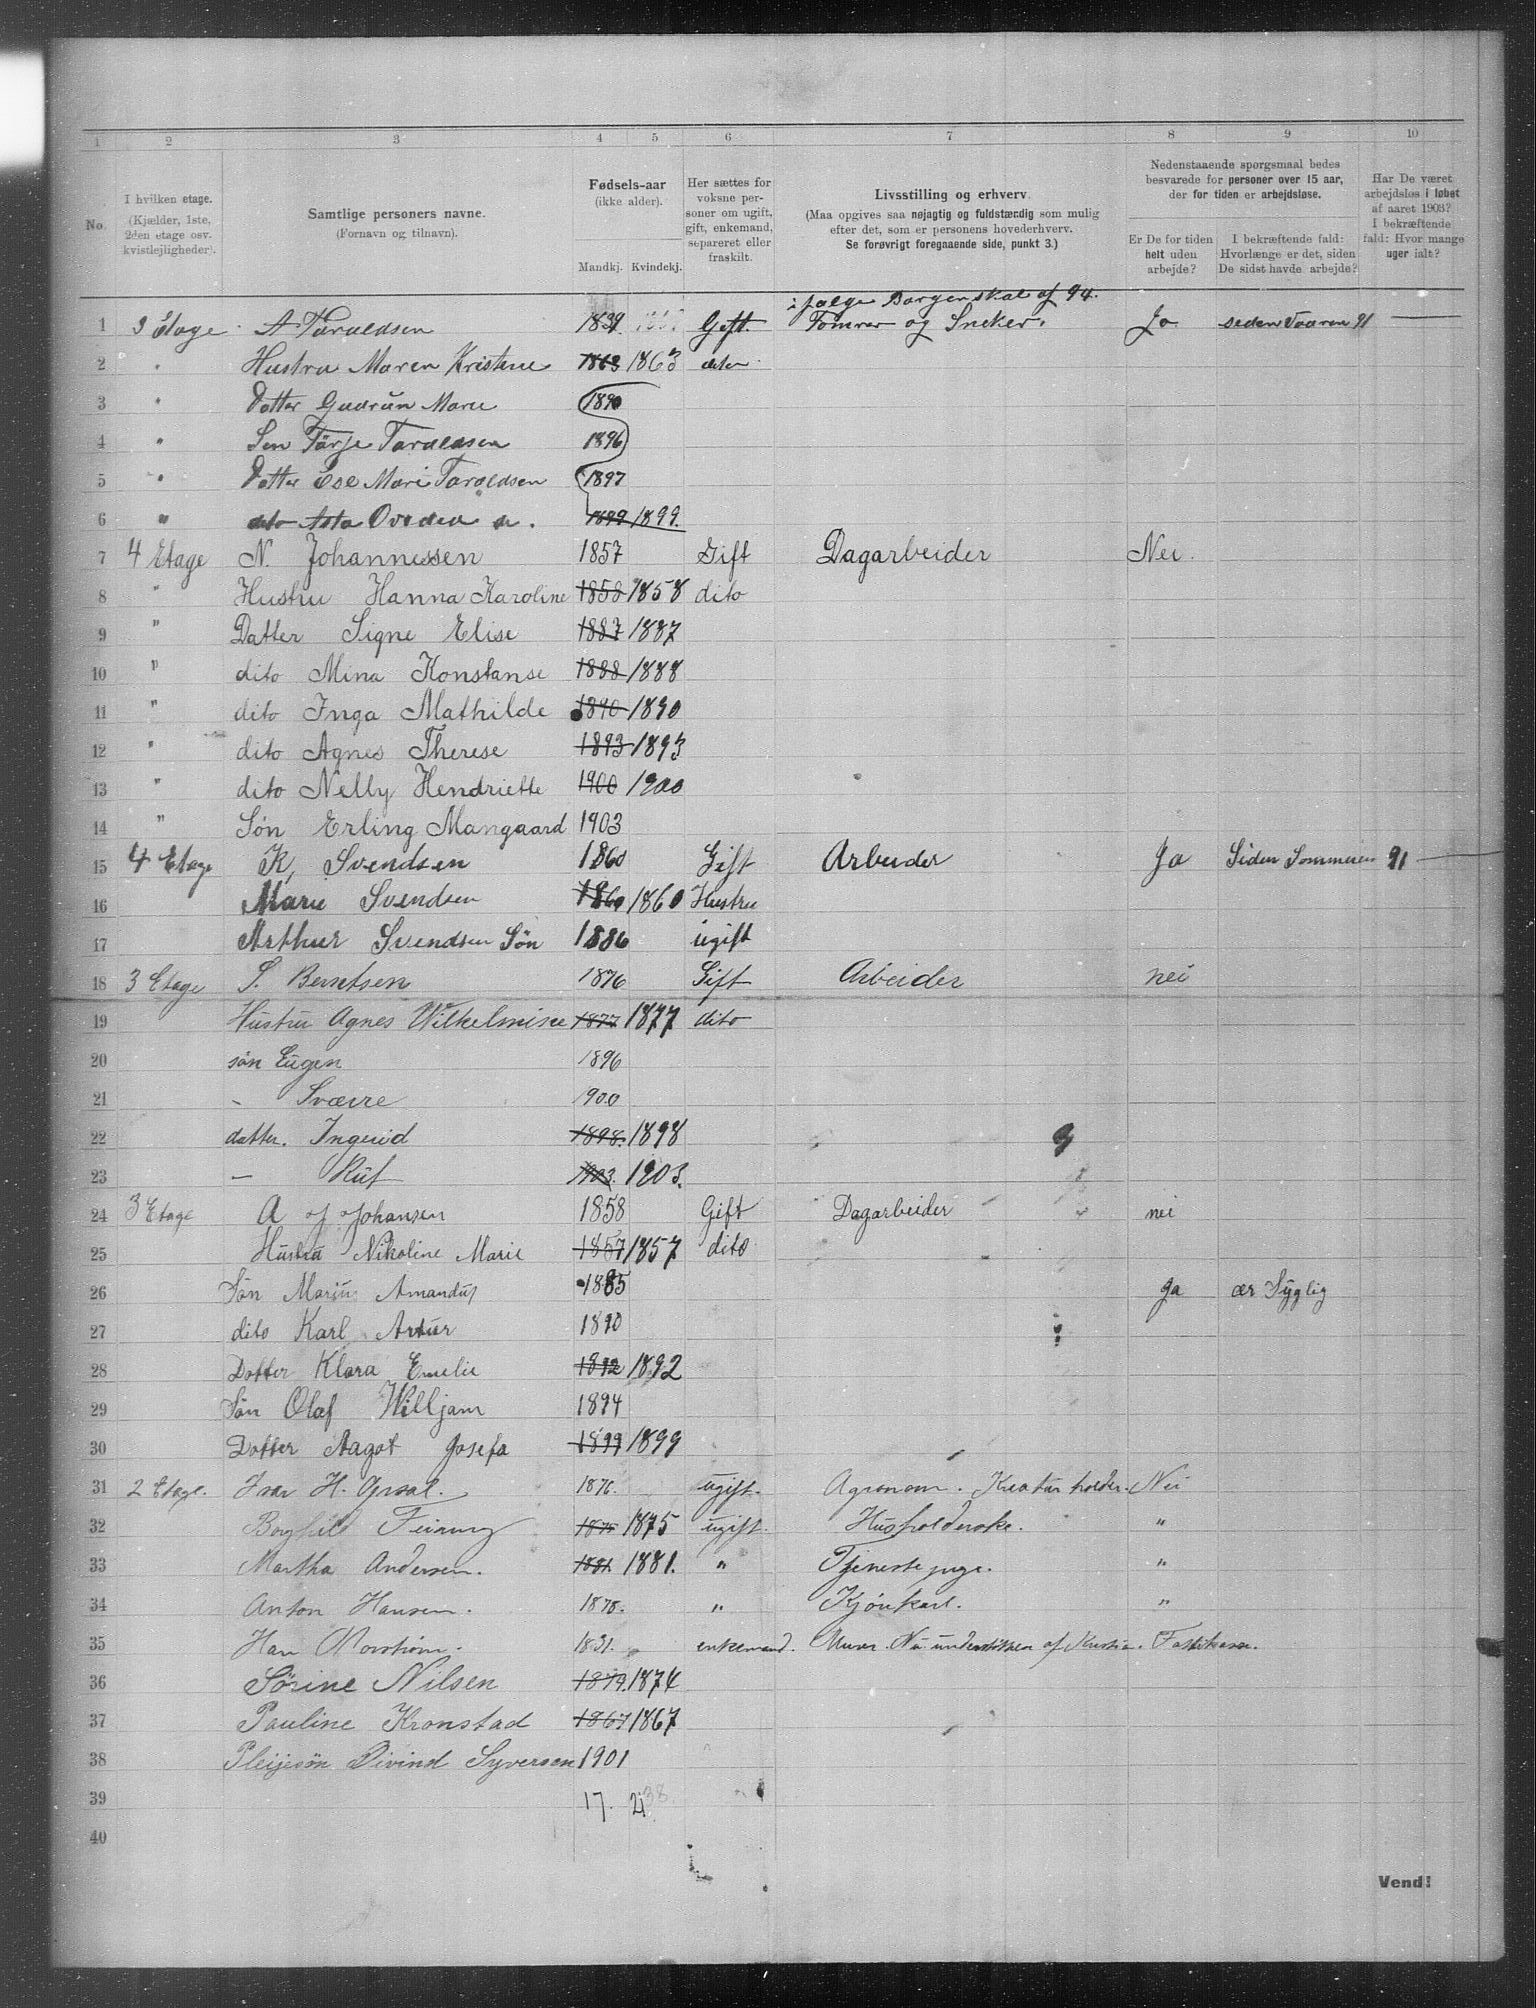 1 2 3 4 5 6 7 8 9 10
No.
I hvilken etage.
(Kjælder, 1ste,
2den etage osv.
kvistlejligheder).
Samtlige personers navne.
(Fornavn og tilnavn).
Fødsels-aar
(ikke alder).
Mandkj. Kvindekj.
Her sættes for
voksne per-
soner om ugift,
gift, enkemand,
separeret eller
fraskilt.
Livsstilling og erhverv.
(Maa opgives saa nøjagtig og fuldstændig som mulig
efter det, som er personens hovederhverv.
Se forøvrigt foregaaende side, punkt 3.)
Nedenstaaende spørgsmaal bedes
besvarede for personer over 15 aar,
der for tiden er arbejdsløse.
Er De for tiden
helt uden
arbejde?
I bekræftende fald:
Hvorlænge er det, siden
De sidst havde arbejde?
Har De været
arbejdsløs i løbet
af aaret 1903?
I bekræftende
fald: Hvor mange
uger ialt?
i følge Borgerskal af 94.
1 3 Etage A Taraldsen Gift. Tømrer og Sneker. Ja seden Vaaren 91
2 " Hustru Maren Kristene 1863 1863 dito
3 " Datter Gudrun Marie 1890
4 " Sen Tårje Taraldsen 1896
5 " Datter Ese Mari Taraldsen 1897
6 " dito Asta 1899 1899.
7 4 Etage N. Johannessen 1857 Gift Dagarbeider Nei.
8 " Hustru Hanna Karoline 1858 1858 dito
9 " Datter Signe Elise 1887 1887
10 " dito Mina Konstanse 1888 1888
11 " dito Inga Mathilde 1890 1890
12 " dito Agnes Therese 1893 1893
13 " dito Nelly Hendriette 1900 1900
14 " Søn Erling Mangaard 1903
15 4 Etage K, Svendsen 1860 Gift Arbeider Ja Siden Sommeren 91
16 Marie Svendsen 1860 1860 Hustru
17 Arthur Svendsen Søn 1886 ugift
18 3 Etage S. Berntsen 1876 Gift Arbeider nei
19 Hustru Agnes Wilhelmine 1877 1877 dito
20 søn Eugen 1896
21 - Sværre 1900
22 datter. Ingerid 1898. 1898
23 — Rut 1903. 1903.
24 3 Etage A J Johansen 1858 Gift Dagarbeider nei
25 Hustru Nikoline Marie 1857 1857 dito
26 Søn Marius Amandus 1885 Ja ær Syglig
27 dito Karl Artur 1890
28 Dotter Klara Emelie 1892 1892
29 Søn Olaf Willjam 1894
30 Dotter Aagot Josefa 1899 1899
31 2 Etage. Ivar H. 1876. ugift. Agronom. Nei
32 Borghild 1875 1875 ugift. Husholderske. "
33 Martha Andersen. 1881 1881. " Tjenestepige. "
34 Anton Hansen. 1878. " "
35 Han 1831. enkemand. Murer. Nu understøttes af Fattikasse.
36 Sørine Nilsen 1874
37 Pauline Kronstad 1867 1867
38 Pleijesøn Øivind Syversen 1901
39 17. 21 38.
40
Vend!